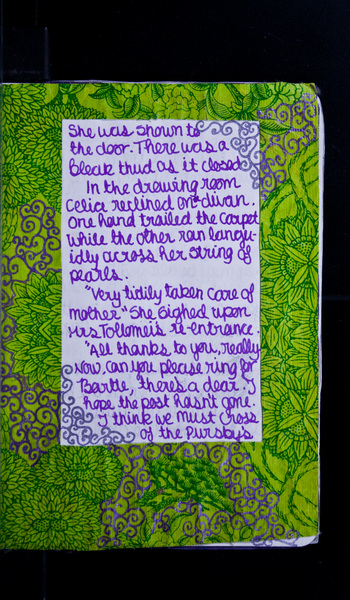 She was shown to
the door. There was a
bleak thud as it closed.
In the drawing room
Celia reclined on divan.
One hand trailed the carpet
while the other ran langu-
idly across her string of
pearls.
"Very tidily taken care of
mother." She sighed upon
Mrs Tollomeis re-entrance.
"All thanks to you, really
Now, can you please ring for
Bartle, there's a dear. I
hope the post hasn't gone.
I think we must cross
of the Pursbys